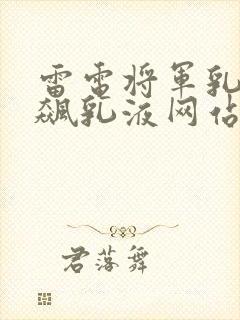 雷电将军乳
飙乳液网站
君落舞